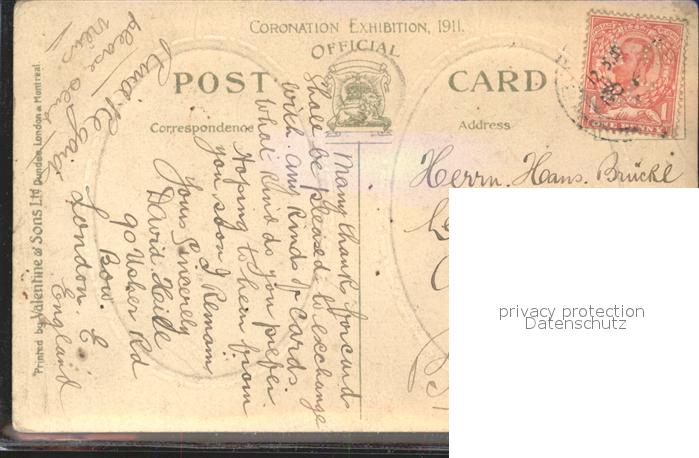 CORONATION EXHIBITION, 1911.
OFFICIAL
POST CARD
Correspondence
Address
ONE PENNY
Herrn. Hans. Brückl
Many thanks for card
Shall be pleased to exchange
with any kinds of cards.
What kind do you prefer
Hoping to hear from
you soon I Remain
Yours Sincerely
David Haile
90 Usher Rd
Bow.
London. E
England
please
views only
Printed by Valentine & Sons Ltd Dundee, London & Montreal.
privacy protection
Datenschutz